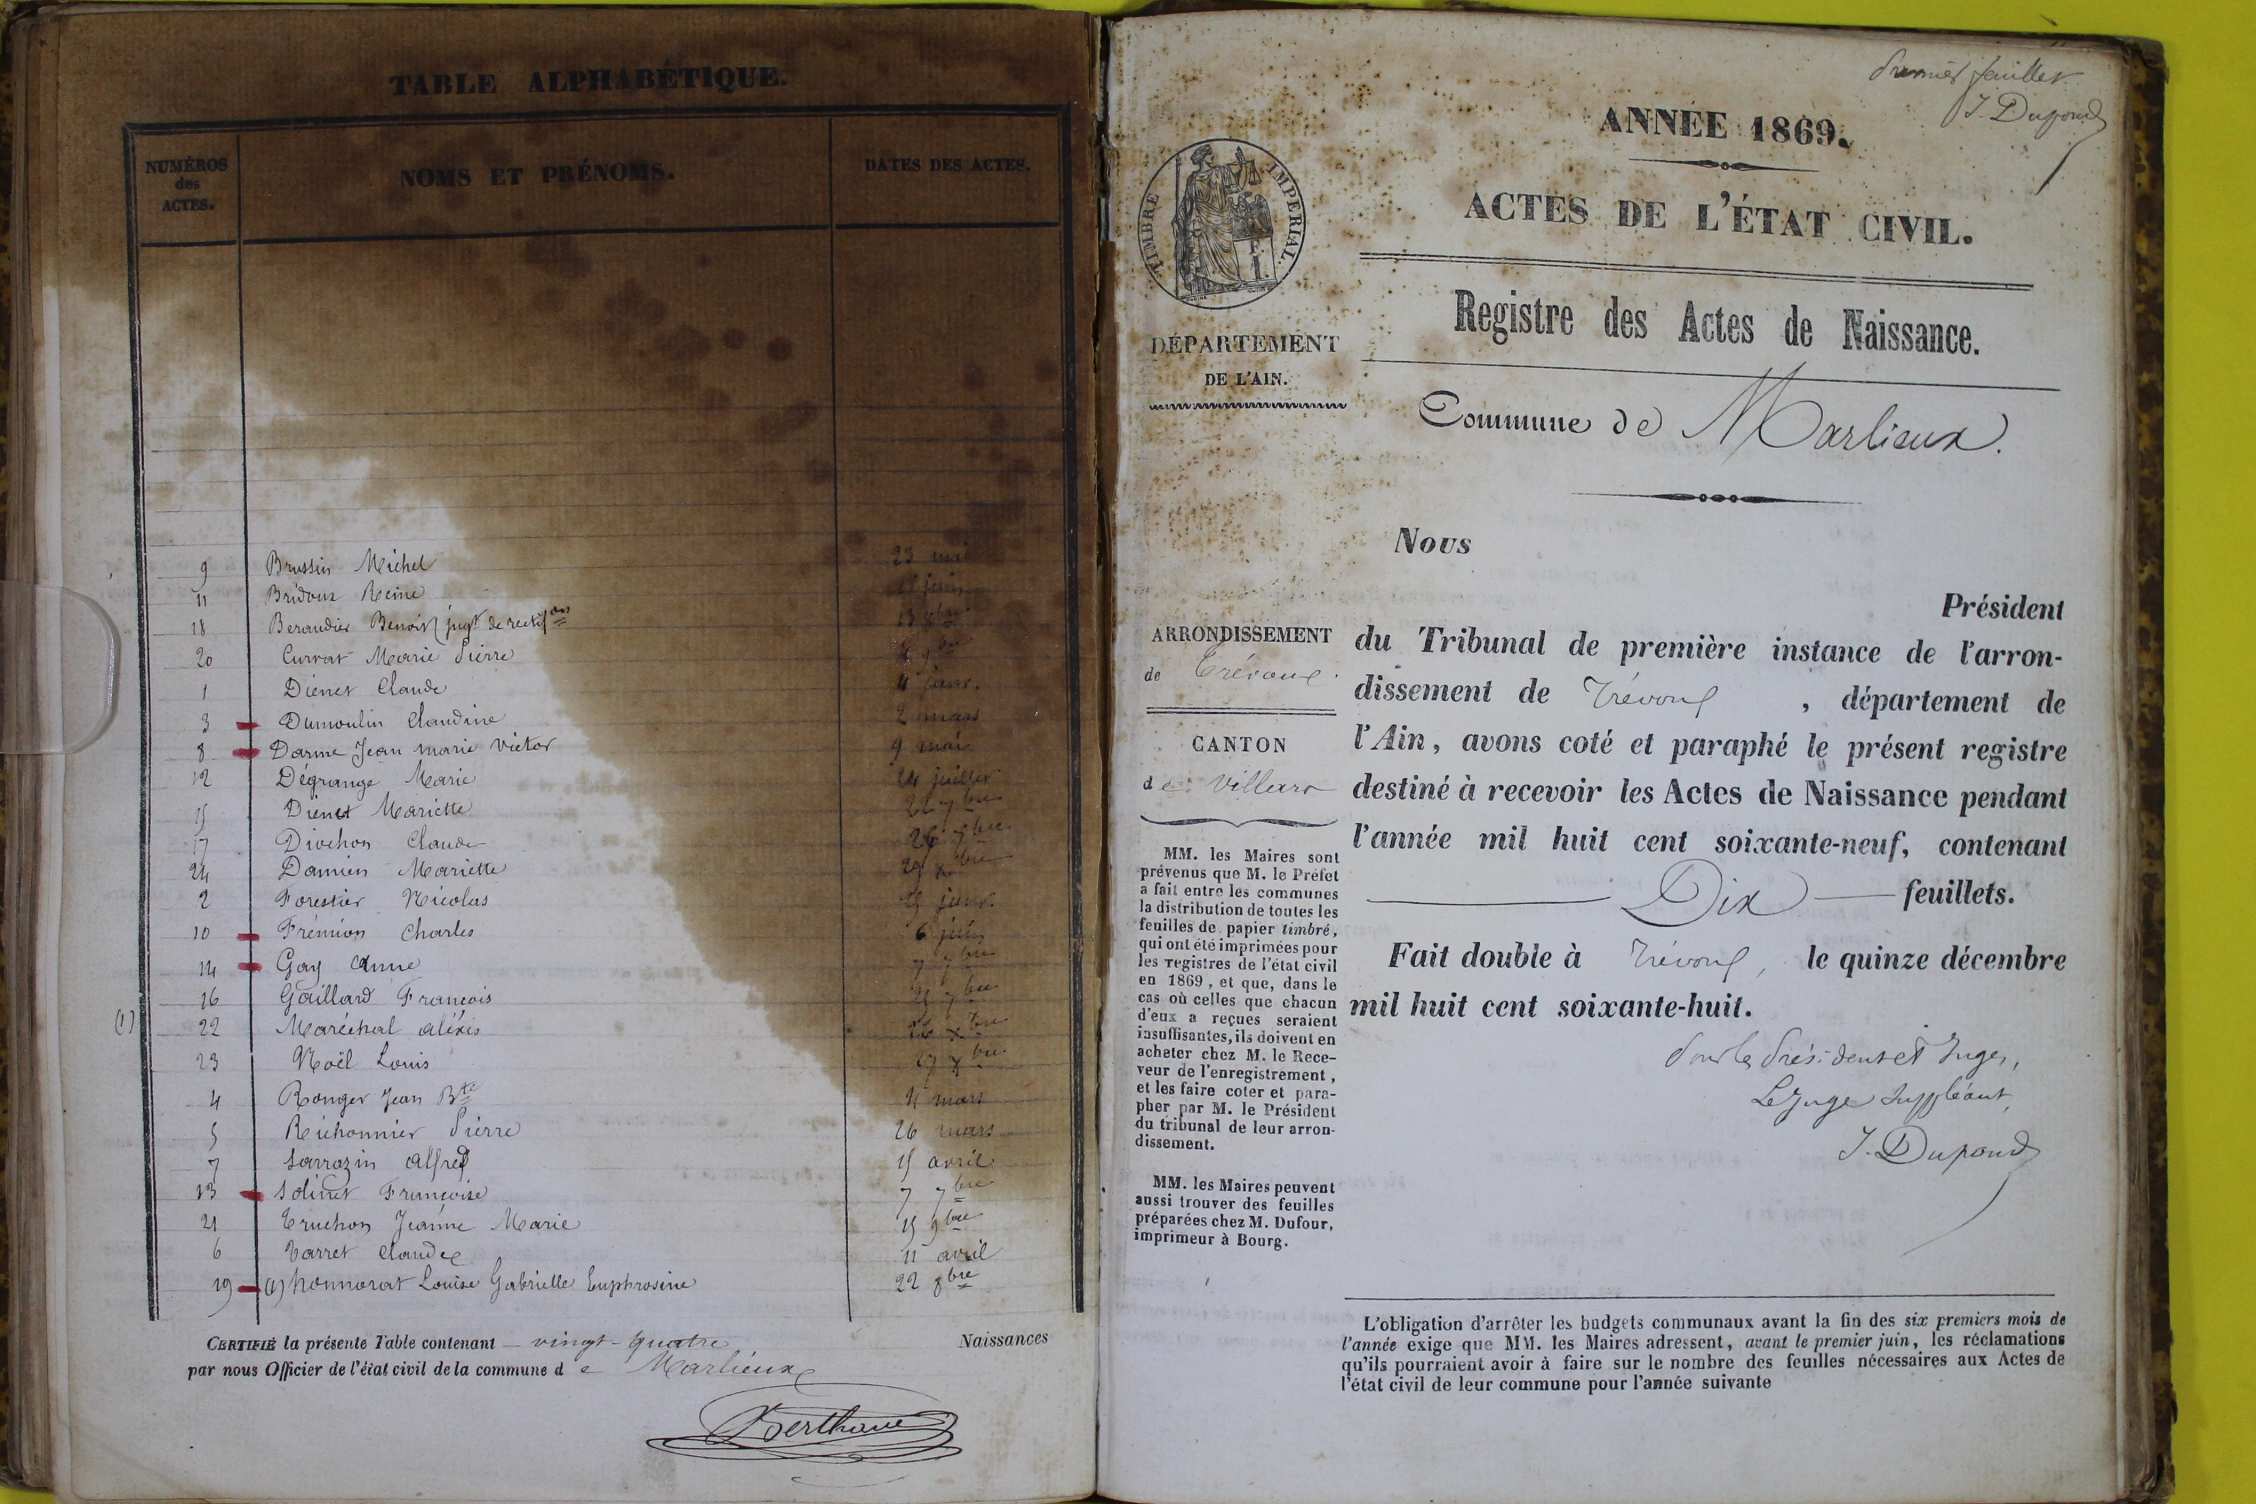 TABLE ALPHABÉTIQUE.
NUMÉROS des ACTES.
NOMS ET PRÉNOMS.
DATES DES ACTES.
9 Brussin Michel 23 mai
11 Bridoux Reine juin
18 Beraudier Benoit (jugt de rectifon 13 8bre
20 Curvat Marie Pierre 9bre
1 Dienet Claude 4 janv.
3 Dumoulin Claudine 2 mars
8 Darme Jean marie victor 9 mai
12 Dégrange Marie 24 juillet
15 Dienet Mariette 22 7bre
17 Divehon Claude 26 7bre
24 Damien Mariette 29 Xbre
2 Forestier Nicolas 15 janv.
10 Frémion Charles 6 juin
14 Gay Anne 7 7bre
16 Gaillard François 25 7bre
(1) 22 Maréchal aléxis 26 Xbre
23 Noël Louis 27 Xbre
4 Ronger Jean Bte 11 mars
5 Réchonnier Pierre 26 mars
7 Sarrazin Alfred 15 avril
13 Solinet Françoise 7 7bre
21 Truchon Jeanne Marie 15 9bre
6 Varret Claude 11 avril
19 (1) honnorat Louise Gabrielle Euphrosine 22 8bre
CERTIFIÉ la présente Table contenant vingt-quatre Naissances
par nous Officier de l'état civil de la commune de Marlieux
premier feuillet
J. Dupond
ANNÉE 1869.
ACTES DE L'ÉTAT CIVIL.
TIMBRE IMPERIAL.
Registre des Actes de Naissance.
DÉPARTEMENT
DE L'AIN.
Commune de Marlieux.
Nous
Président
du Tribunal de première instance de l'arron-
dissement de Trévoux, département de
l'Ain, avons coté et paraphé le présent registre
destiné à recevoir les Actes de Naissance pendant
l'année mil huit cent soixante-neuf, contenant
Dix feuillets.
Fait double à Trévoux, le quinze décembre
mil huit cent soixante-huit.
Pour le Président et Juges,
Le Juge Suppléant,
J. Dupond
ARRONDISSEMENT
de Trévoux.
CANTON
de Villars
MM. les Maires sont
prévenus que M. le Préfet
a fait entre les communes
la distribution de toutes les
feuilles de papier timbré,
qui ont été imprimées pour
les registres de l'état civil
en 1869, et que, dans le
cas où celles que chacun
d'eux a reçues seraient
insuffisantes, ils doivent en
acheter chez M. le Rece-
veur de l'enregistrement,
et les faire coter et para-
pher par M. le Président
du tribunal de leur arron-
dissement.
MM. les Maires peuvent
aussi trouver des feuilles
préparées chez M. Dufour,
imprimeur à Bourg.
L'obligation d'arrêter les budgets communaux avant la fin des six premiers mois de
l'année exige que MM. les Maires adressent, avant le premier juin, les réclamations
qu'ils pourraient avoir à faire sur le nombre des feuilles nécessaires aux Actes de
l'état civil de leur commune pour l'année suivante